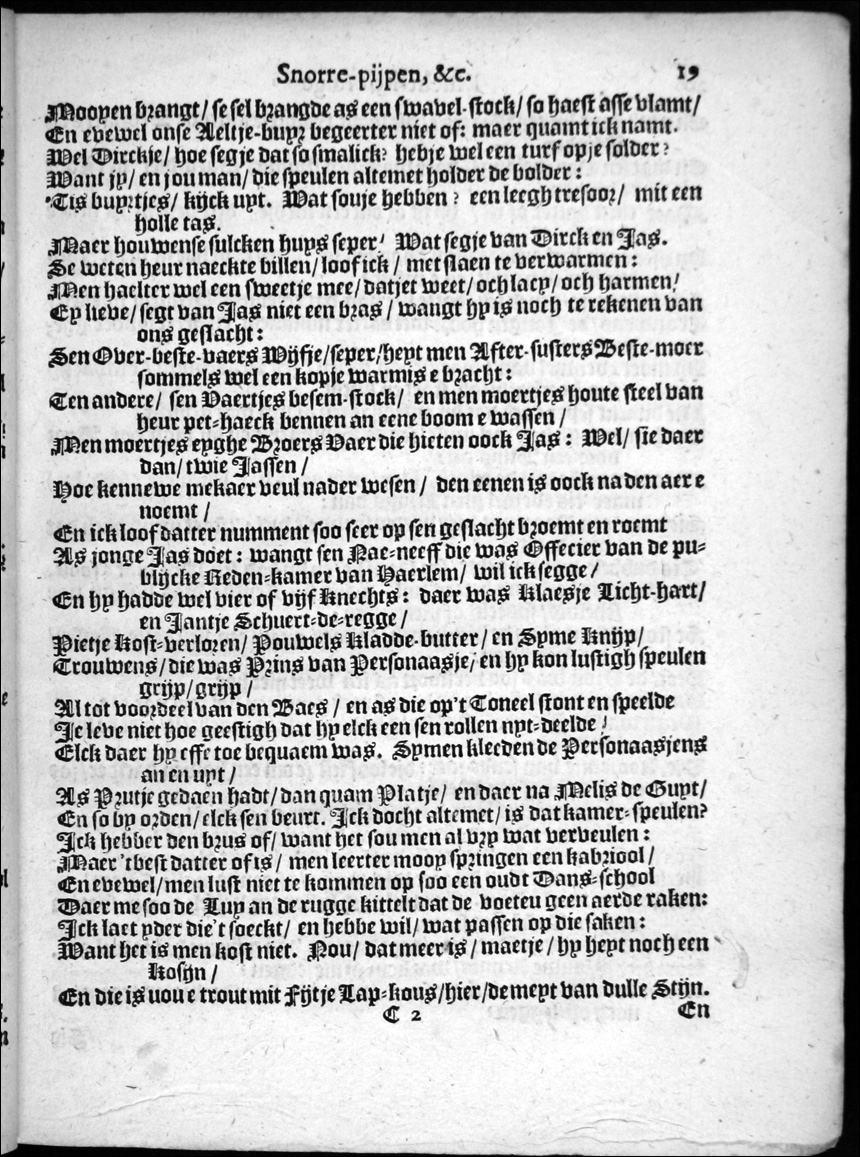 Snorre-pijpen, &c. 19
Mooyen brangt/ se sel brangde as een swavel-stock/ so haest asse vlamt/
En evewel onse Aeltje-buyr begeerter niet of: maer quamt ick namt.
Wel Dirckje/ hoe segje dat so smalick? hebje wel een turf op je solder?
Want jy/ en jou man/ die speulen altemet holder de bolder:
Tis buyrtjes/ kijck uyt. Wat souje hebben? een leegh tresoor/ mit een
holle tas.
Maer houwense sulcken huys seper/ Wat segje van Dirck en Jas.
Se weten heur naeckte billen/ loof ick/ met slaen te verwarmen:
Men haelter wel een sweetje mee/ dat jet weet/ och lacy/ och harmen/
Ey lieve/ segt van Jas niet een bras/ wangt hy is noch te rekenen van
ons geslacht:
Sen Over-beste-vaers Wijfje/ seper/ heyt men After-susters Beste-moer
sommels wel een kopje warmis e bracht:
Ten andere/ sen Vaertjes besem-stock/ en men moertjes houte steel van
heur pet-haeck bennen an eene boom e wassen/
Men moertjes eyghe Broers Vaer die hieten oock Jas: Wel/ sie daer
dan/ twie Jassen/
Hoe kennewe mekaer veul nader wesen/ den eenen is oock na den aer e
noemt/
En ick loof datter numment soo seer op sen geslacht broemt en roemt
As jonge Jas doet: wangt sen Nae-neeff die was Offecier van de pu-
blijcke Reden-kamer van Haerlem/ wil ick segge/
En hy hadde wel vier of vijf Knechts: daer was Klaesje Licht-hart/
en Jantje Schuert-de-regge/
Pietje Kost-verloren/ Pouwels Kladde-butter/ en Syme Knijp/
Trouwens/ die was Prins van Personaasje/ en hy kon lustigh speulen
grijp/ grijp/
Al tot voordeel van den Baes/ en as die op't Toneel stont en speelde
Je leve niet hoe geestigh dat hy elck een sen rollen uyt-deelde/
Elck daer hy effe toe bequaem was. Symen kleeden de Personaasjens
an en uyt/
As Prutje gedaen hadt/ dan quam Platje/ en daer na Melis de Guyt/
En so by orden/ elck sen beurt. Ick docht altemet/ is dat kamer-speulen?
Ick hebber den brus of/ want het sou men al vry wat verveulen:
Maer 't best datter of is/ men leerter mooy springen een kabriool/
En evewel/ men lust niet te kommen op soo een oudt Dans-school
Daer me soo de Luy an de rugge kittelt dat de voeteu geen aerde raken:
Ick laet yder die't soeckt/ en hebbe wil/ wat passen op die saken:
Want het is men kost niet. Nou/ dat meer is/ maetje/ hy heyt noch een
Kosijn/
En die is uou e trout mit Fijtje Lap-kous/ hier/ de meyt van dulle Stijn.
C 2 En